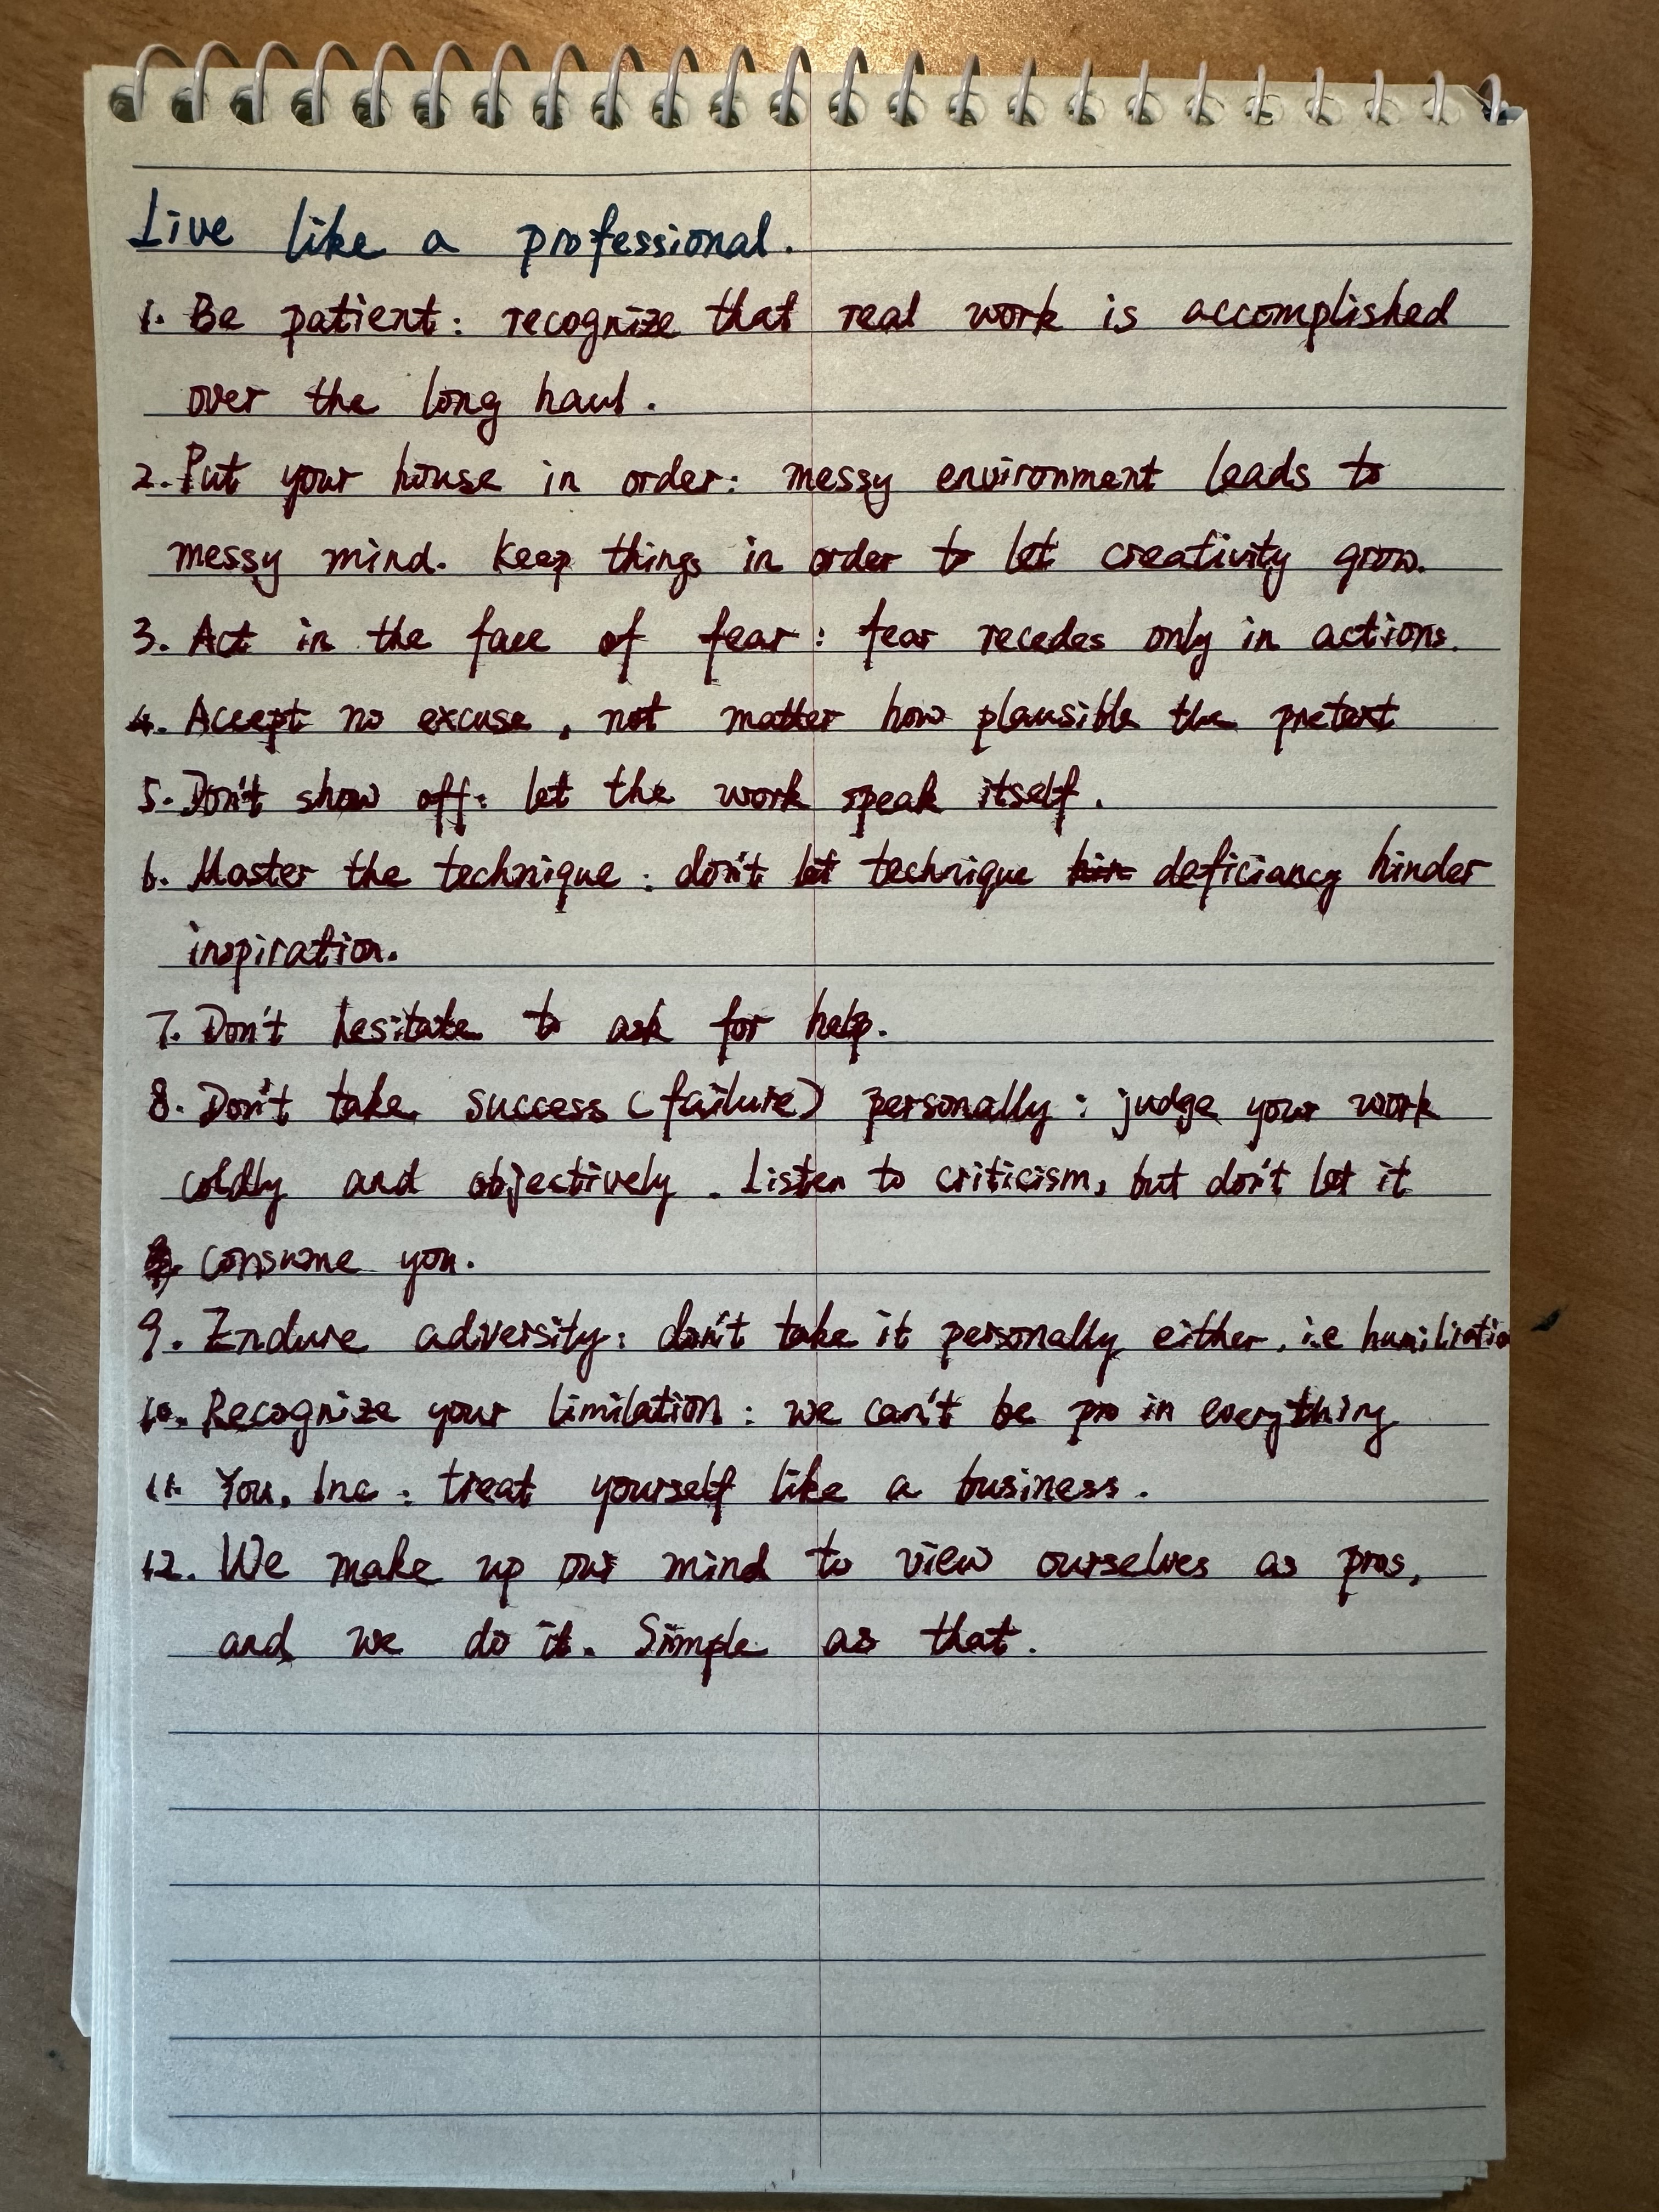 Live like a professional.
1. Be patient: recognize that real work is accomplished
over the long haul.
2. Put your house in order: messy environment leads to
messy mind. Keep things in order to let creativity grow.
3. Act in the face of fear: fear recedes only in actions.
4. Accept no excuse, not matter how plausible the pretext
5. Don't show off: let the work speak itself.
6. Master the technique: don't let technique deficiancy hinder
inspiration.
7. Don't hesitate to ask for help.
8. Don't take success (failure) personally: judge your work
coldly and objectively. Listen to criticism, but don't let it
consume you.
9. Endure adversity: don't take it personally either, i.e humiliratio
10. Recognize your limilation: we can't be pro in everything
11. You, Inc: treat yourself like a business.
12. We make up our mind to view ourselves as pros,
and we do it. Simple as that.